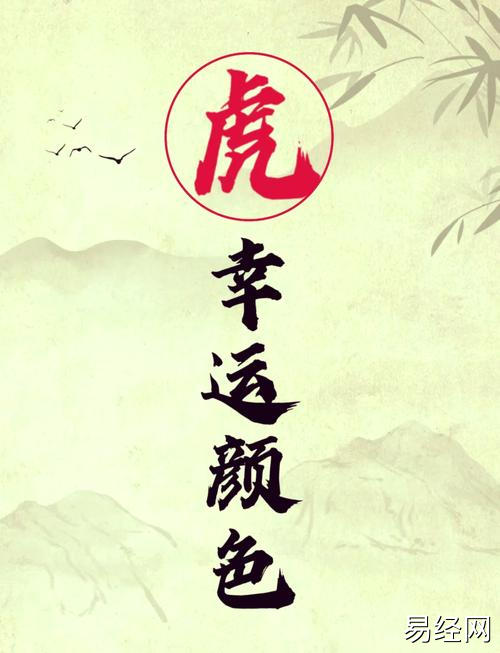 虎
幸运颜色
易经网